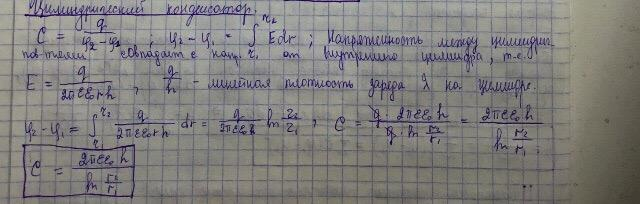 Цилиндрический конденсатор.
C = q / (φ₂ - φ₁) ; φ₂ - φ₁ = ∫_{r₁}^{r₂} E dr ; Напряженность между цилиндрич.
совпадает с напр. от внутреннего цилиндра, т.е.
E = q / (2πεε₀rh) , q/h - линейная плотность заряда λ на цилиндре.
φ₂ - φ₁ = ∫_{r₁}^{r₂} q / (2πεε₀rh) dr = q / (2πεε₀h) ln r₂/r₁ ; C = q · 2πεε₀h / (q · ln r₂/r₁) = 2πεε₀h / ln r₂/r₁ ;
C = 2πεε₀h / ln r₂/r₁